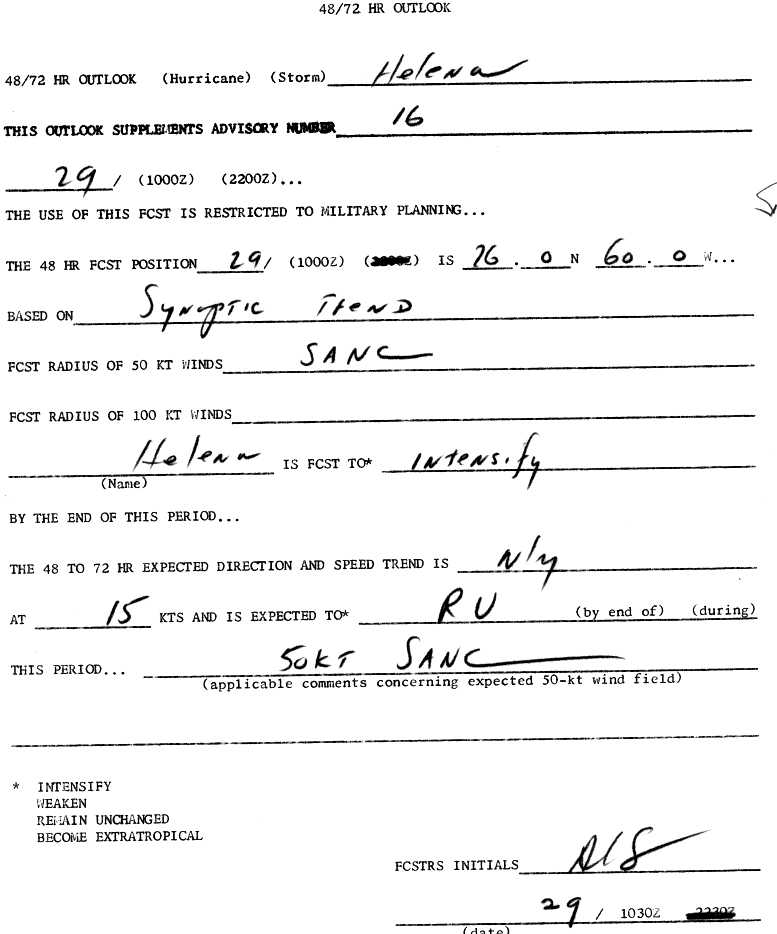 48/72 HR OUTLOOK
48/72 HR OUTLOOK (Hurricane) (Storm) Helena
THIS OUTLOOK SUPPLEMENTS ADVISORY NUMBER 16
29 / (1000Z) (2200Z)...
THE USE OF THIS FCST IS RESTRICTED TO MILITARY PLANNING...
THE 48 HR FCST POSITION 29/ (1000Z) ( ) IS 26.0 N 60.0 W...
BASED ON Synoptic Trend
FCST RADIUS OF 50 KT WINDS SANC
FCST RADIUS OF 100 KT WINDS
Helena IS FCST TO* Intensify
(Name)
BY THE END OF THIS PERIOD...
THE 48 TO 72 HR EXPECTED DIRECTION AND SPEED TREND IS N'ly
AT 15 KTS AND IS EXPECTED TO* RU (by end of) (during)
THIS PERIOD... 50KT SANC
(applicable comments concerning expected 50-kt wind field)
* INTENSIFY
WEAKEN
REMAIN UNCHANGED
BECOME EXTRATROPICAL
FCSTRS INITIALS
29 / 1030Z 2230Z
(date)